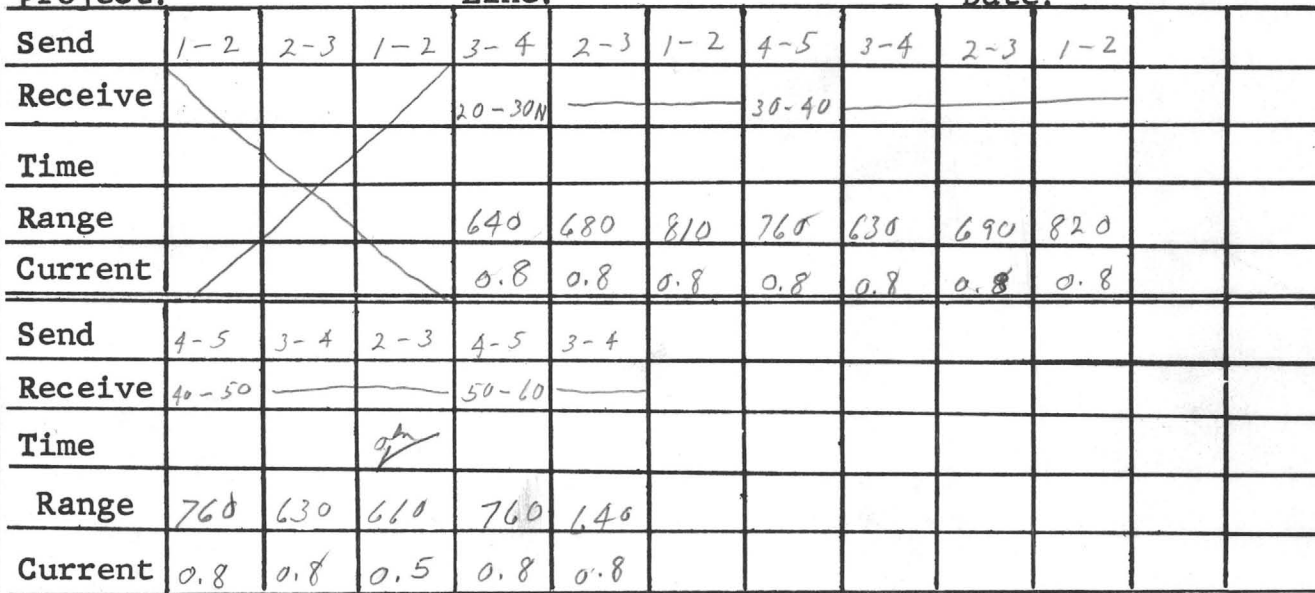 Send 1-2 2-3 1-2 3-4 2-3 1-2 4-5 3-4 2-3 1-2
Receive 20-30N 30-40
Time
Range 640 680 810 760 630 690 820
Current 0.8 0.8 0.8 0.8 0.8 0.8 0.8
Send 4-5 3-4 2-3 4-5 3-4
Receive 40-50 50-60
Time
Range 760 630 660 760 640
Current 0.8 0.8 0.5 0.8 0.8